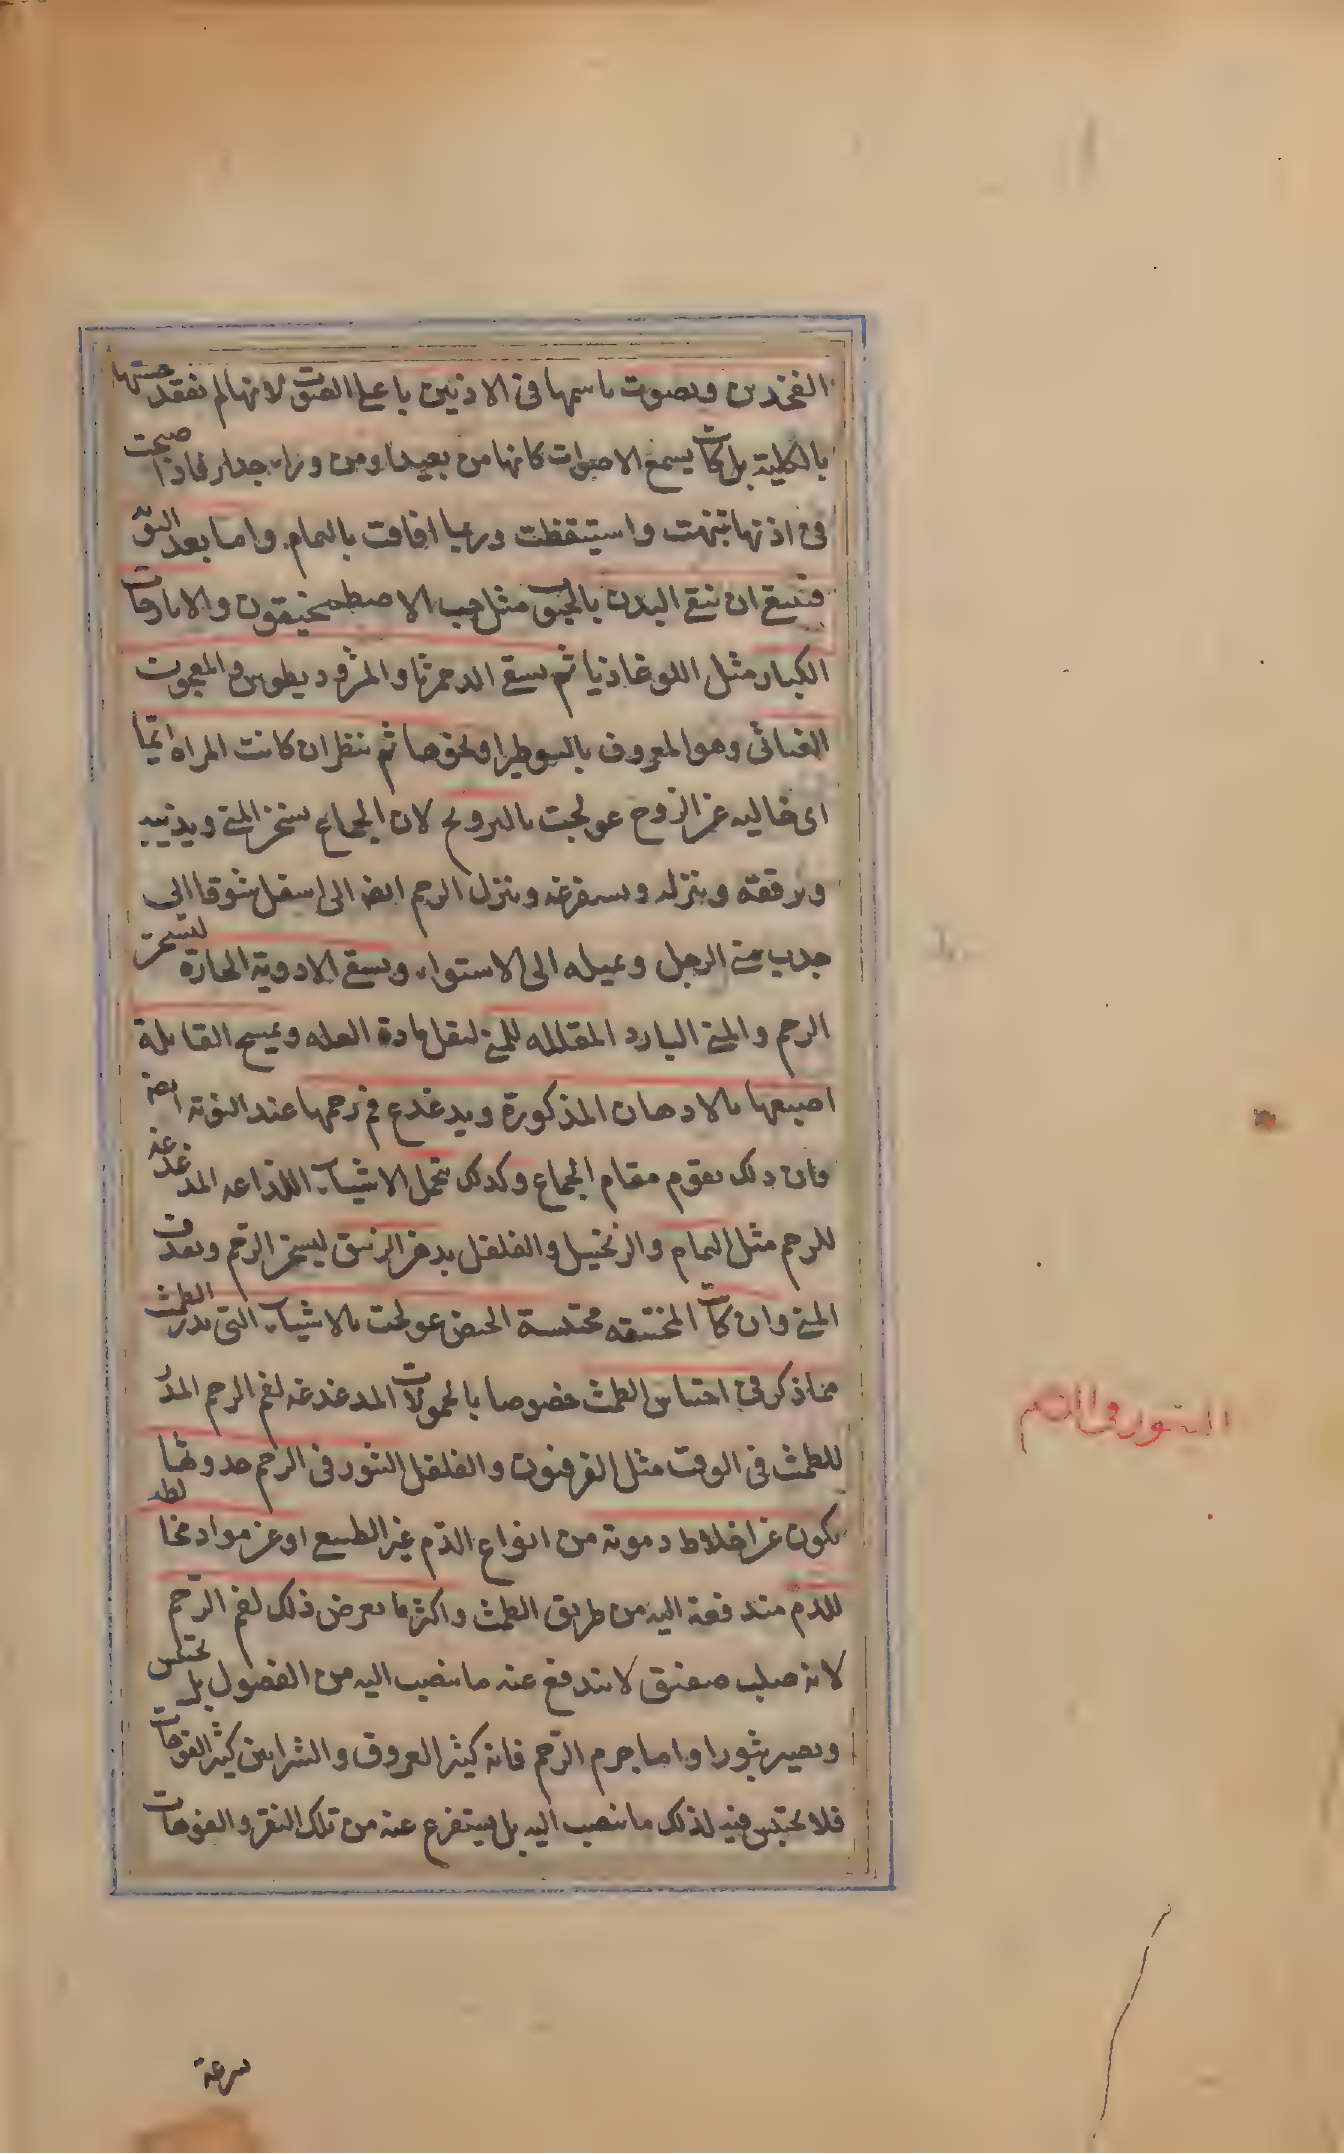 الفخذين ويصوت باسمها فى الاذنين باعلى الصوت لانها لم تفقد حسها
بالكلية بل كانت يسمع الاصوات كانها من بعيد او من وراء جدار فاذا صيحت
فى اذنها تنبهت واستيقظت وربما افاقت بالتمام واما بعد النوبة
فينبغى ان ينقى البدن بالحبوب مثل حب الاصطمخيقون والايارجات
الكبار مثل اللوغاذيا ثم يسقى الدحمرثا والمثروديطوس والمعجون
الغياثى وهو المعروف بالسوطيرا ونحوها ثم ننظر ان كانت المراه ايما
اى خاليه عن الزوج عولجت بالتزويج لان الجماع يسخن المنى ويذيبه
ويرققه وينزله ويستفرغه وينزل الرحم ايضا الى اسفل شوقا الى
جذب منى الرجل ويميله الى الاستواء ويسقى الادوية الحارة ليسخن
الرحم والمنى البارد المقلله للمنى ليقل مادة العله ويمسح القابلة
اصبعها بالادهان المذكورة ويدغدغ فم رحمها عند النوبة ايضا
فان ذلك يقوم مقام الجماع وكذلك تحمل الاشياء اللذاعه المدغدغه
للرحم مثل النمام والزنجبيل والفلفل بدهن الزنبق ليسخن الرحم ويقذف
المنى وان كانت المختنقه محتبسة الحيض عولجت بالاشياء التى يدر الطمث
مما ذكر فى احتباس الطمث خصوصا بالحمولات المدغدغه لفم الرحم المدر
للطمث فى الوقت مثل الفرفيون والفلفل البثور فى الرحم حدوثها
يكون عن اخلاط دموية من انواع الدم غير الطبيعى او عن مواد مخالطه
للدم مندفعة اليه من طريق الطمث واكثر ما يعرض ذلك لفم الرحم
لانه صلب صفيق لا يندفع عنه ما ينصب اليه من الفضول بل يحتبس
ويصير بثورا واما جرم الرحم فانه كثير العروق والشرايين كثير الفوهات
فلا يحتبس فيه لذلك ما ينصب اليه بل يستفرغ عنه من تلك النقر والفوهات
البثور فى الرحم
سرعة